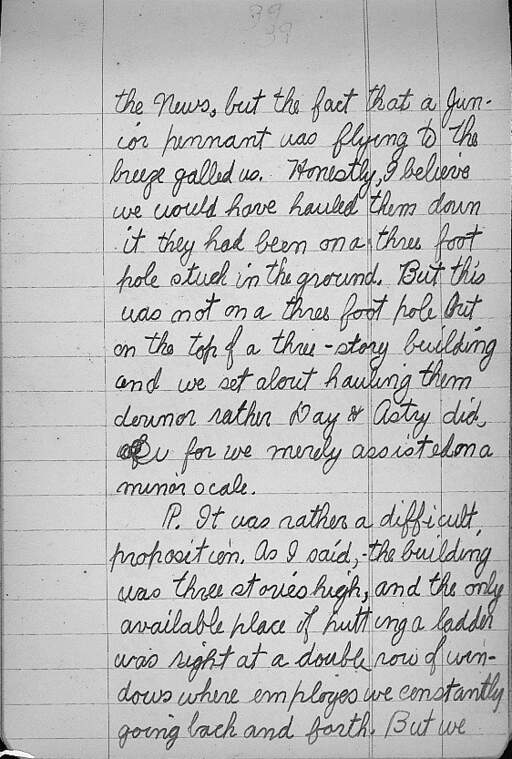 39
39
the News, but the fact that a Jun-
ior pennant was flying to the
breeze galled us. Honestly, I believe
we would have hauled them down
it they had been on a three foot
pole stuck in the ground. But this
was not on a three foot pole but
on the top of a three-story building
and we set about hauling them
down or rather Day & Astry did,
for we merely assisted on a
minor scale.
P. It was rather a difficult
proposition. As I said, the building
was three stories high, and the only
available place of putting a ladder
was right at a double row of win-
dows where employes we constantly
going back and forth. But we